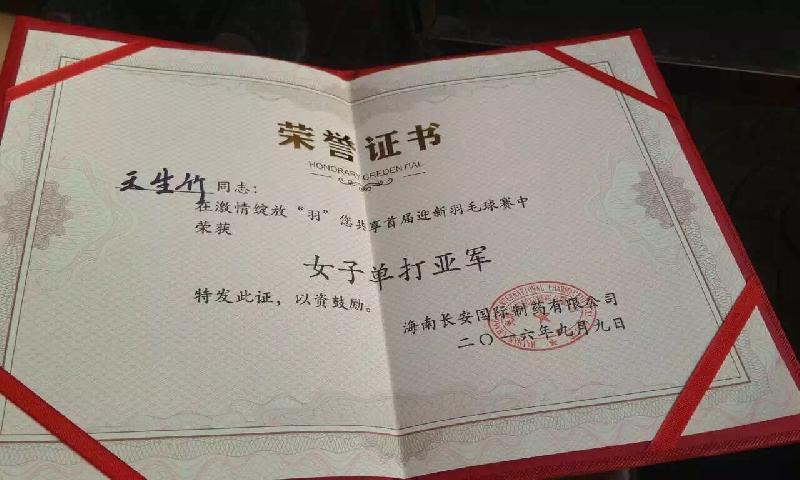 荣誉证书
HONORARY CREDENTIAL
王生竹 同志:
在激情绽放“羽”您共享首届迎新羽毛球赛中
荣获
女子单打亚军
特发此证，以资鼓励。
海南长安国际制药有限公司
二〇一六年九月九日